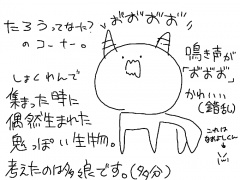 たろうってなーた?
のコーナー。
しょくれんで
集まった時に
偶然生まれた
鬼っぽい生物。
考えたのは多娘です。(多分)
お゛お゛お゛お゛
鳴き声が
「お゛お゛お゛」
かわいい
(錯乱)
これは
なおよしくん